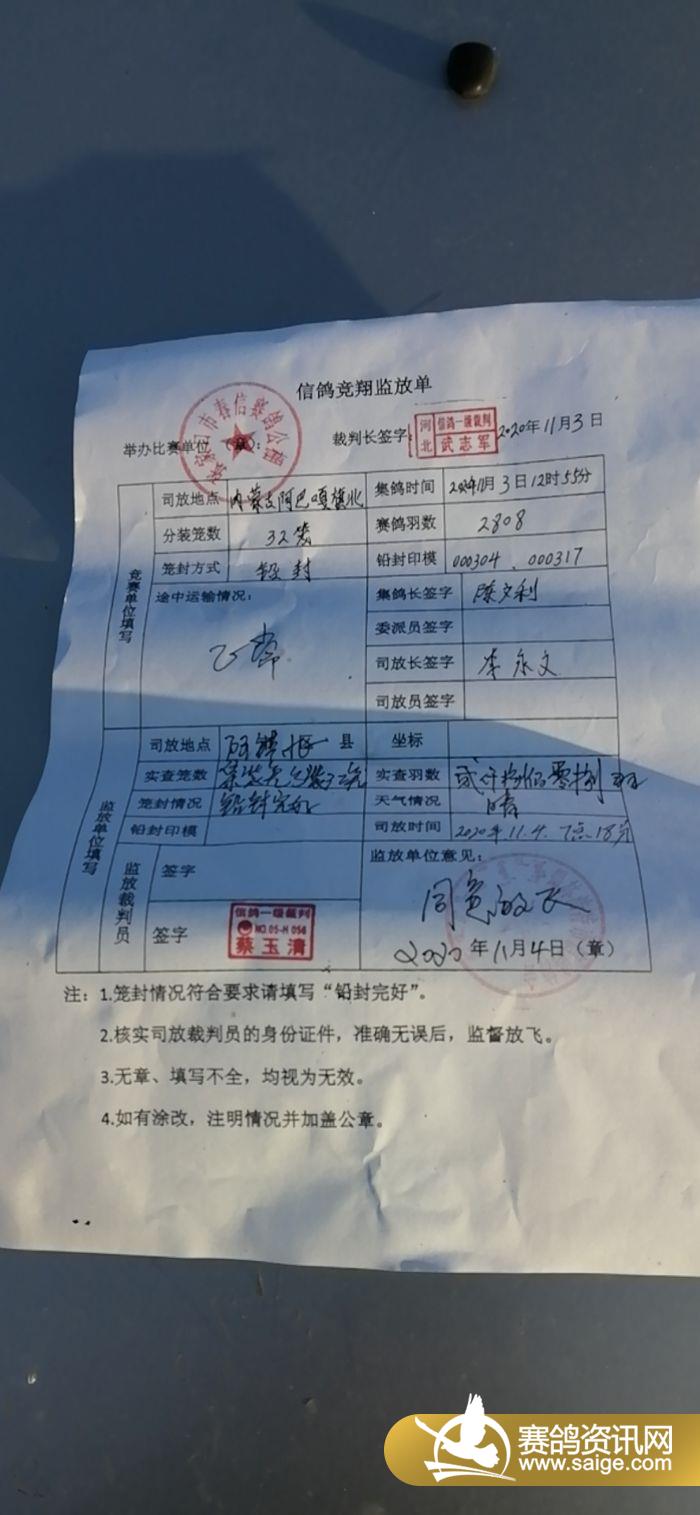 信鸽竞翔监放单
举办比赛单位（章）： 裁判长签字： 河北 信鸽一级裁判 武志军 2020年11月3日
竞赛单位填写
司放地点 内蒙古阿巴嘎旗北 集鸽时间 2020年11月3日12时55分
分装笼数 32笼 赛鸽羽数 2808
笼封方式 铅封 铅封印模 000304、000317
途中运输情况： 正常 集鸽长签字 陈文利
委派员签字
司放长签字 李永文
司放员签字
监放单位填写
司放地点 县 坐标
实查笼数 实查羽数 贰仟捌佰零捌羽
笼封情况 铅封完好 天气情况 晴
铅封印模 司放时间 2020年.11.4. 7点18分
监放裁判员 签字 监放单位意见：
同意放飞
签字 信鸽一级裁判 NO.05-H 056 蔡玉清
2020年11月4日（章）
注：1.笼封情况符合要求请填写“铅封完好”。
2.核实司放裁判员的身份证件，准确无误后，监督放飞。
3.无章、填写不全，均视为无效。
4.如有涂改，注明情况并加盖公章。
赛鸽资讯网
www.saige.com